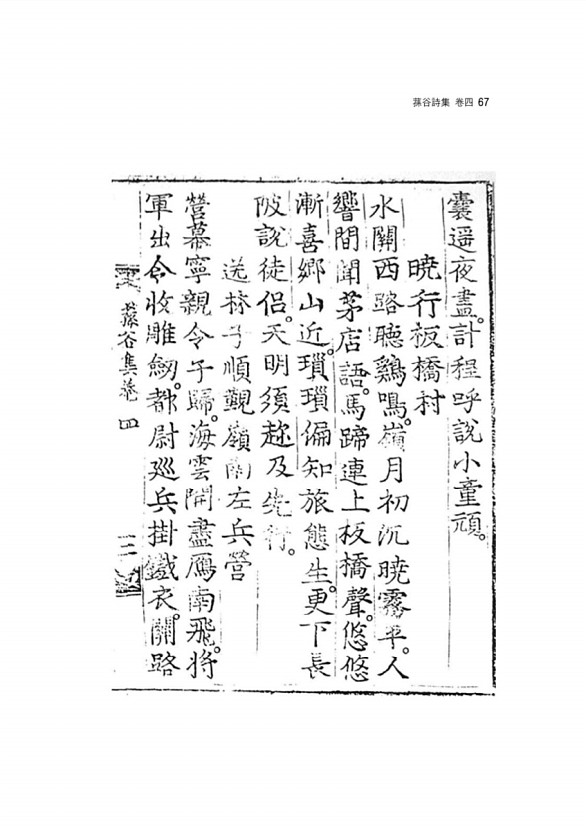 蓀谷詩集 卷四 67
囊遥夜盡。計程呼說小童頑。
曉行板橋村
水關西路聽鷄鳴。嶺月初沉曉霧平。人
響間聞茅店語。馬蹄連上板橋聲。悠悠
漸喜鄉山近。瑣瑣偏知旅態生。更下長
陂說徒侶。天明須趂及先行。
送林子順觀嶺南左兵營
營幕寧親令子歸。海雲開盡鴈南飛。將
軍出令收雕劒。都尉廵兵掛鐵衣。關路
蓀谷集卷四 三